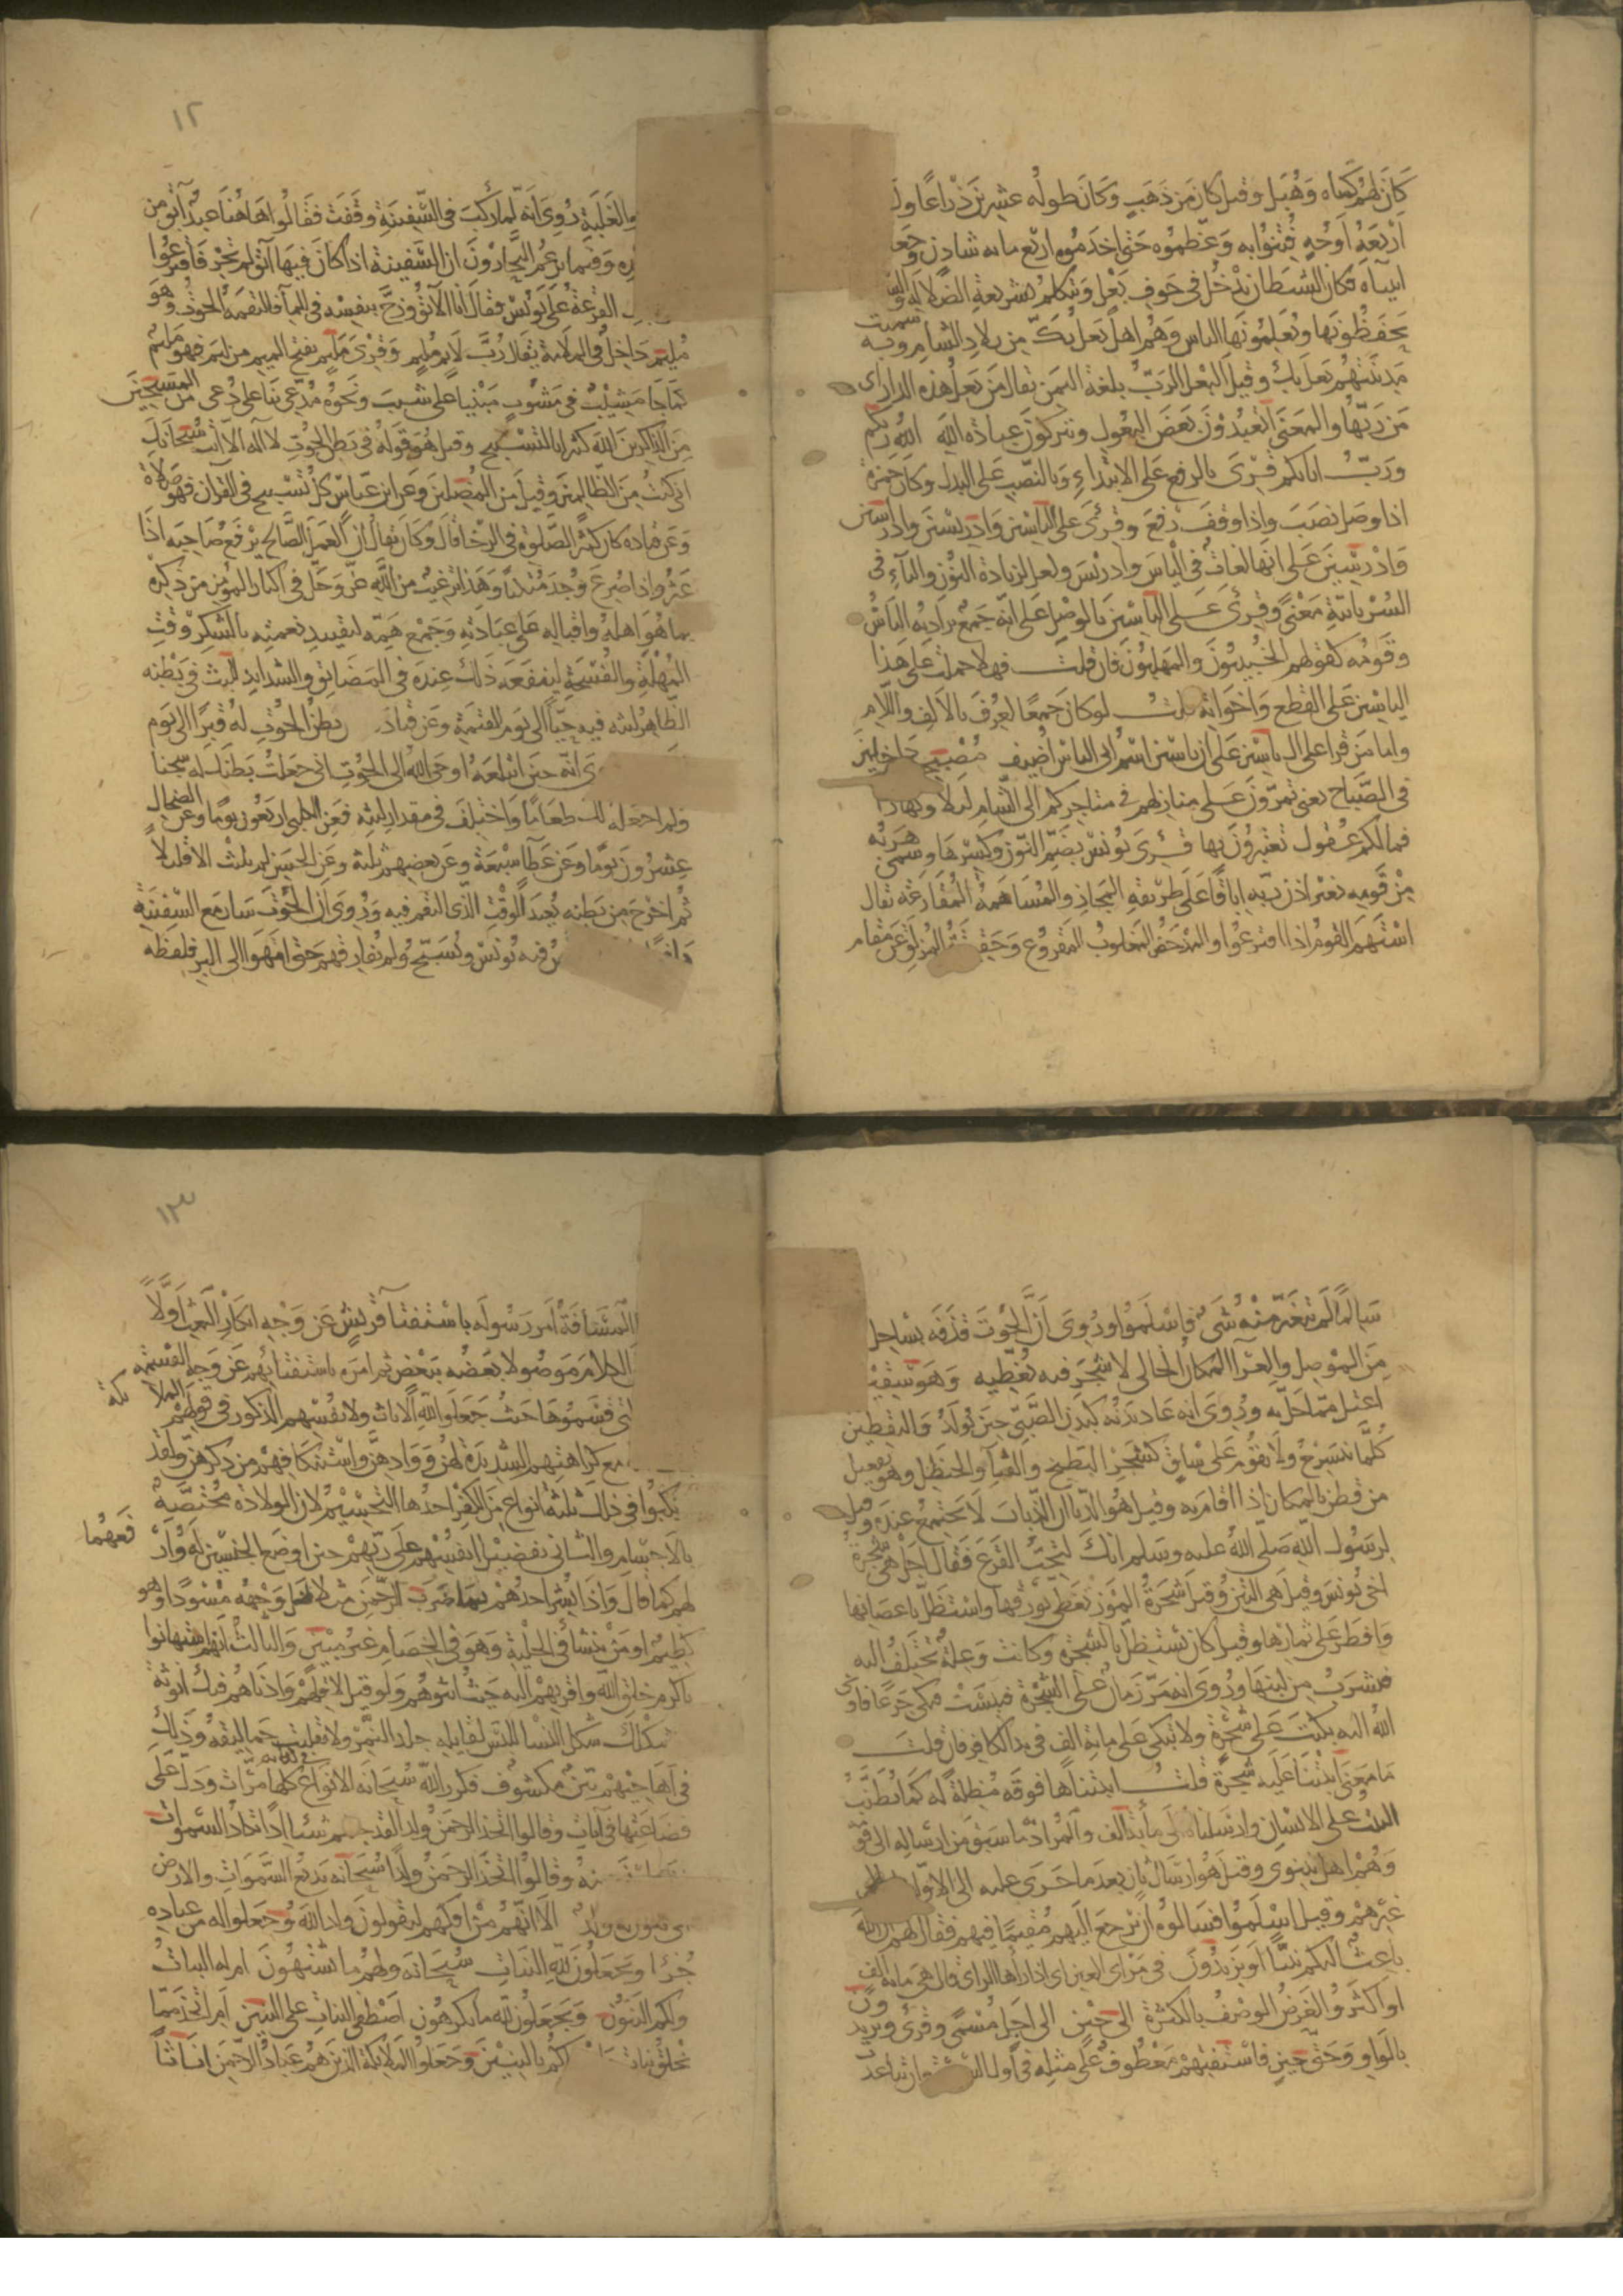 كَانَ لهم كمناه وَهُبَل وقيل كان من ذهب وكان طوله عشرين ذراعًا وله
اربعة اوجهٍ فتنوا به وعظموه حتى اخدموه اربع مايه سادن وجعلوهم
انبياه فكان الشيطان يدخل في جوف بعل ويتكلم بشريعة الضلالة والسدنة
يحفظونها ويعلمونها الناس وهم اهل بعلبك من بلاد الشام وبه سميت
مدينتهم بعلبك وقيل البعل الرب بلغة اليمن يقال من بعل هذه الدار اى
من ربها والمعنى اتعبدون بعض البعول وتتركون عبادة الله الله ربكم
ورب ابائكم قرئ بالرفع على الابتداء وبالنصب على البدل وكان حمزة
اذا وصل نصب واذا وقف رفع وقرئ على الياسين وادريسين وادراسين
وادرسين على انها لغات في الياس وادريس ولعل لزيادة النون والياء في
السريانية معنًى وقرئ على الياسين بالوصل على انه جمع يراد به الياس
وقومه كقولهم الخبيبون والمهلبون فان قلت فهلا حملت على هذا
الياسين على القطع واخواته قلت لو كان جمعًا لعرف بالالف واللام
واما من قرا على ال ياسين فعلى ان ياسين اسم ابى الياس اضيف مصبحين داخلين
في الصباح يعنى تمرون على منازلهم في متاجركم الى الشام ليلا ونهارا
فما لكم عقول تعتبرون بها قرئ يونس بضم النون وكسرها وسمى هربه
من قومه بغير اذن ربه اباقًا على طريقة المجاز والمساهمة المقارعة يقال
استهم القوم اذا اقترعوا والمدحض المغلوب المقروع وحقيقته المزلق عن مقام
١٢
والغلبة روى انه لما ركب في السفينة وقفت فقالوا هاهنا عبد ابق من
وفيما يزعم البحارون ان السفينة اذا كان فيها ابق لم تجر فاقترعوا
القرعة على يونس فقال انا الابق وزج بنفسه في الماء فالتقمه الحوت وهو
مليم داخل في الملامة يقال رب لايم مليم وقرئ مليم بفتح الميم من ليم فهو مليم
كما جا مشيب في مشوب مبنيا على شيب ونحوه مدعى بنا على دعى من المسبحين
من الذاكرين الله كثيرا بالتسبيح وقيل هو قوله في بطن الحوت لا اله الا انت سبحانك
انى كنت من الظالمين وقيل من المصلين وعن ابن عباس كل تسبيح في القران فهو صلاة
وعن قتاده كان كثير الصلوة في الرخا قال وكان يقال ان العمل الصالح يرفع صاحبه اذا
عثر واذا صرع وجد متكئا وهذا ترغيب من الله عز وجل في اكثار المومن من ذكره
بما هو اهله واقباله على عبادته وجمع همه لتقييد نعمته بالشكر في وقت
المهلة والفسحة لينفعه ذلك عنده في المضائق والشدايد للبث في بطنه
الظاهر لبثه فيه حيّا الى يوم القيمة وعن قتادة بطن الحوت له قبرًا الى يوم
انه حين ابتلعه اوحى الله الى الحوت انى جعلت بطنك له سجنا
ولم اجعله لك طعاما واختلف في مقدار لبثه فعن الكلبي اربعون يوما وعن الضحاك
عشرون يوما وعن عطا سبعة وعن بعضهم ثلثة وعن الحسن لم يلبث الا قليلا
ثم اخرج من بطنه بعيد الوقت الذى التقم فيه وروى ان الحوت سار مع السفينة
فيه يونس ويسبح ولم يفارقهم حتى انتهوا الى البر فلفظه
سالمًا لم يتغير منه شئ فاسلموا وروى ان الحوت قذفه بساحل
من الموصل والعرا المكان الخالى لا شجر فيه يغطيه وهو سقيم
اعتل مما حل به وروى انه عاد بدنه كبدن الصبى حين يولد واليقطين
كلما ينسرح ولا يقوم على ساق كشجر البطيخ والقثا والحنظل وهو يفعيل
من قطن بالمكان اذا اقام به وقيل هو الدبا ان الذباب لا يجتمع عنده وقيل
لرسول الله صلى الله عليه وسلم انك لتحب القرع فقال اجل هى شجرة
اخى يونس وقيل هى التين وقيل شجرة الموز تغطى بورقها واستظل باغصانها
وافطر على ثمارها وقيل كان يستظل بالشجرة وكانت وعلة تختلف اليه
فيشرب من لبنها وروى انه مر زمان على الشجرة فيبست فبكى جزعا فاوحى
الله اليه بكيت على شجرة ولا تبكى على ماية الف في يد الكافر فان قلت
ما معنى انبتنا عليه شجرة قلت انبتناها فوقه مظلة له كما يطنب
البيت على الانسان وارسلناه الى مائة الف والمراد ما سبق من ارساله الى قومه
وهم اهل نينوى وقيل هو ارسال ثان بعد ما جرى عليه الى الاولين
غيرهم وقيل اسلموا فسالوه ان يرجع اليهم مقيمًا فيهم فقال لهم ان الله
باعث اليكم نبيًا او يزيدون في مراى العين اى اذا راها الراى قال هى مايه الف
او اكثر والغرض الوصف بالكثرة الى حين الى اجل مسمى وقرئ ويزيدون
بالواو وحتى حين فاستفتهم معطوف على مثله في اول السورة وان تباعدت
١٣
المسافة امر رسوله باستفتا قريش عن وجه انكار البعث اولًا
الكلام موصولا بعضه ببعض ثم امره باستفتائهم عن وجه القسمة
التى قسموها حيث جعلوا لله الاناث ولانفسهم الذكور في قولهم الملائكة
مع كراهتهم الشديدة لهن ووادهن واستنكافهم من ذكرهن ولقد
ارتكبوا في ذلك ثلثة انواع من الكفر احدها التجسيم لان الولادة مختصة
بالاجسام والثانى تفضيل انفسهم على ربهم حين اوضع الجنسين له وارفعهما
لهم كما قال واذا بشر احدهم بما ضرب للرحمن مثلا ظل وجهه مسودًا وهو
كظيم او من ينشا في الحلية وهو في الخصام غير مبين والثالث انهم استهانوا
باكرم خلق الله واقربهم اليه حيث انثوهم ولو قيل لاقلهم وادناهم فيك انوثة
شكلك شكل النسا للبس لقايله جلد النمر ولانقلبت حماليقه وذلك
في اهاجيهم بين مكشوف فكرر الله سبحانه الانواع كلها في كتابه مرات ودل على
فضاعتها في ايات وقالوا اتخذ الرحمن ولدا لقد جئتم شيئا ادًا تكاد السموات
منه وقالوا اتخذ الرحمن ولدًا سبحانه بديع السموات والارض
انى يكون له ولد الا انهم من افكهم ليقولون ولد الله وجعلوا له من عباده
جزءا ويجعلون لله البنات سبحانه ولهم ما يشتهون ام له البنات
ولكم البنون ويجعلون لله ما يكرهون اصطفى البنات على البنين ام اتخذ مما
يخلق بنات واصفاكم بالبنين وجعلوا الملائكة الذين هم عباد الرحمن اناثًا